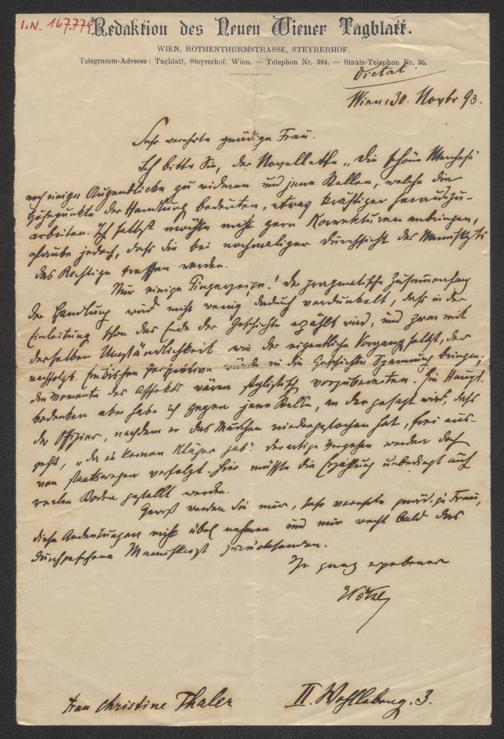 I.N. 167.778
Redaktion des Neuen Wiener Tagblatt.
WIEN, ROTHENTHURMSTRASSE, STEYRERHOF.
Telegramm-Adresse: Tagblatt, Steyrerhof, Wien. — Telephon Nr. 384. — Staats-Telephon Nr. 36.
Dictat.
Wien, 30. Novbr 93.
Sehr verehrte gnädige Frau.
Ich bitte Sie, der Novellette „Die schöne
noch einige Augenblicke zu widmen und jene Stellen, welche die
Höhepunkte der Handlung bedeuten, etwas kräftiger herauszu-
arbeiten. Ich selbst möchte nicht gern Korrekturen anbringen,
glaube jedoch, daß Sie bei nochmaliger Durchsicht des Manuskripts
das Richtige treffen werden.
Nur einige Fingerzeige! Der pragmatische Zusammenhang
der Handlung wird nicht wenig dadurch verdunkelt, daß in der
Einleitung schon das Ende der Geschichte erzählt wird, und zwar mit
derselben Umständlichkeit wie der eigentliche Vorgang selbst, der
nachfolgt. Perspektive würde in die Geschichte Spannung bringen;
die Momente des Affekts wären stylistisch vorzubereiten. Ein Haupt-
bedenken aber habe ich gegen jene Stelle, in der gesagt wird, daß
der Offizier, nachdem er das Mädchen niedergestochen hat, frei aus-
geht, „da es keinen Kläger gab“ derartige Vergehen werden doch
von staatswegen verfolgt. Hier müßte die Erzählung unbedingt auf
realen Boden gestellt werden.
Gewiß werden Sie mir, sehr verehrte gnädige Frau,
diese Andeutungen nicht übel nehmen und mir recht bald das
Manuskript zurücksenden.
Ihr ganz ergebener
Frau Christine Thaler
II. 3.